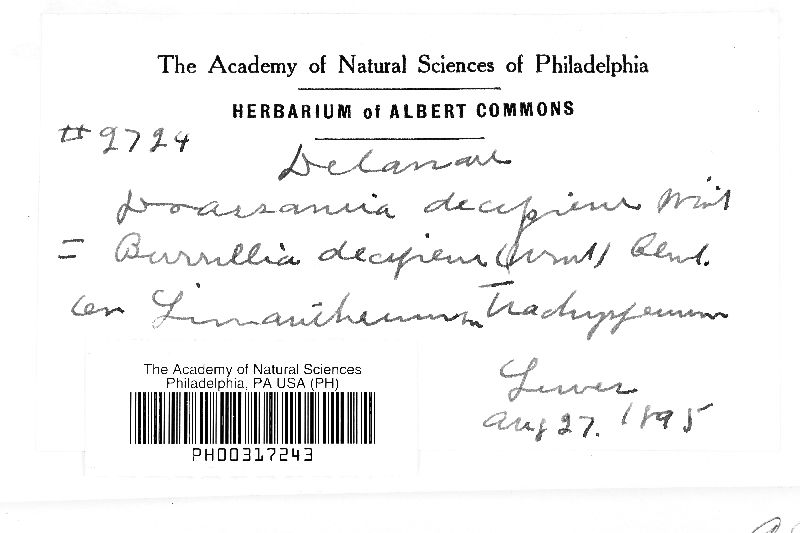 The Academy of Natural Sciences of Philadelphia
HERBARIUM of ALBERT COMMONS
#2724
Delaware
Doassansia decipiens Wint
= Burrillia decipiens (Wint) Clint.
on Limanthemum Trachyspermum
Lewes
Aug 27. 1895
The Academy of Natural Sciences
Philadelphia, PA USA (PH)
PH00317243